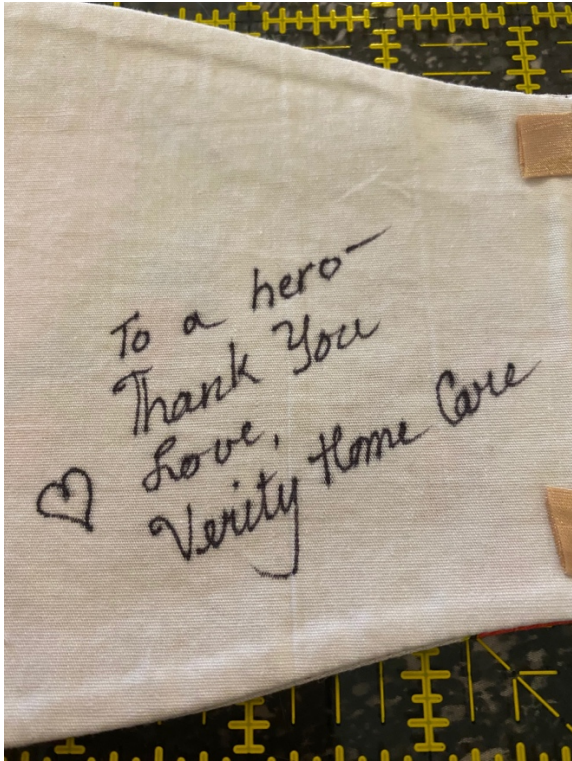 To a hero-
Thank You
Love,
Verity Home Care